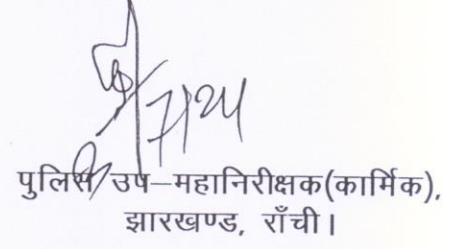 पुलिस उप–महानिरीक्षक(कार्मिक),
झारखण्ड, राँची।